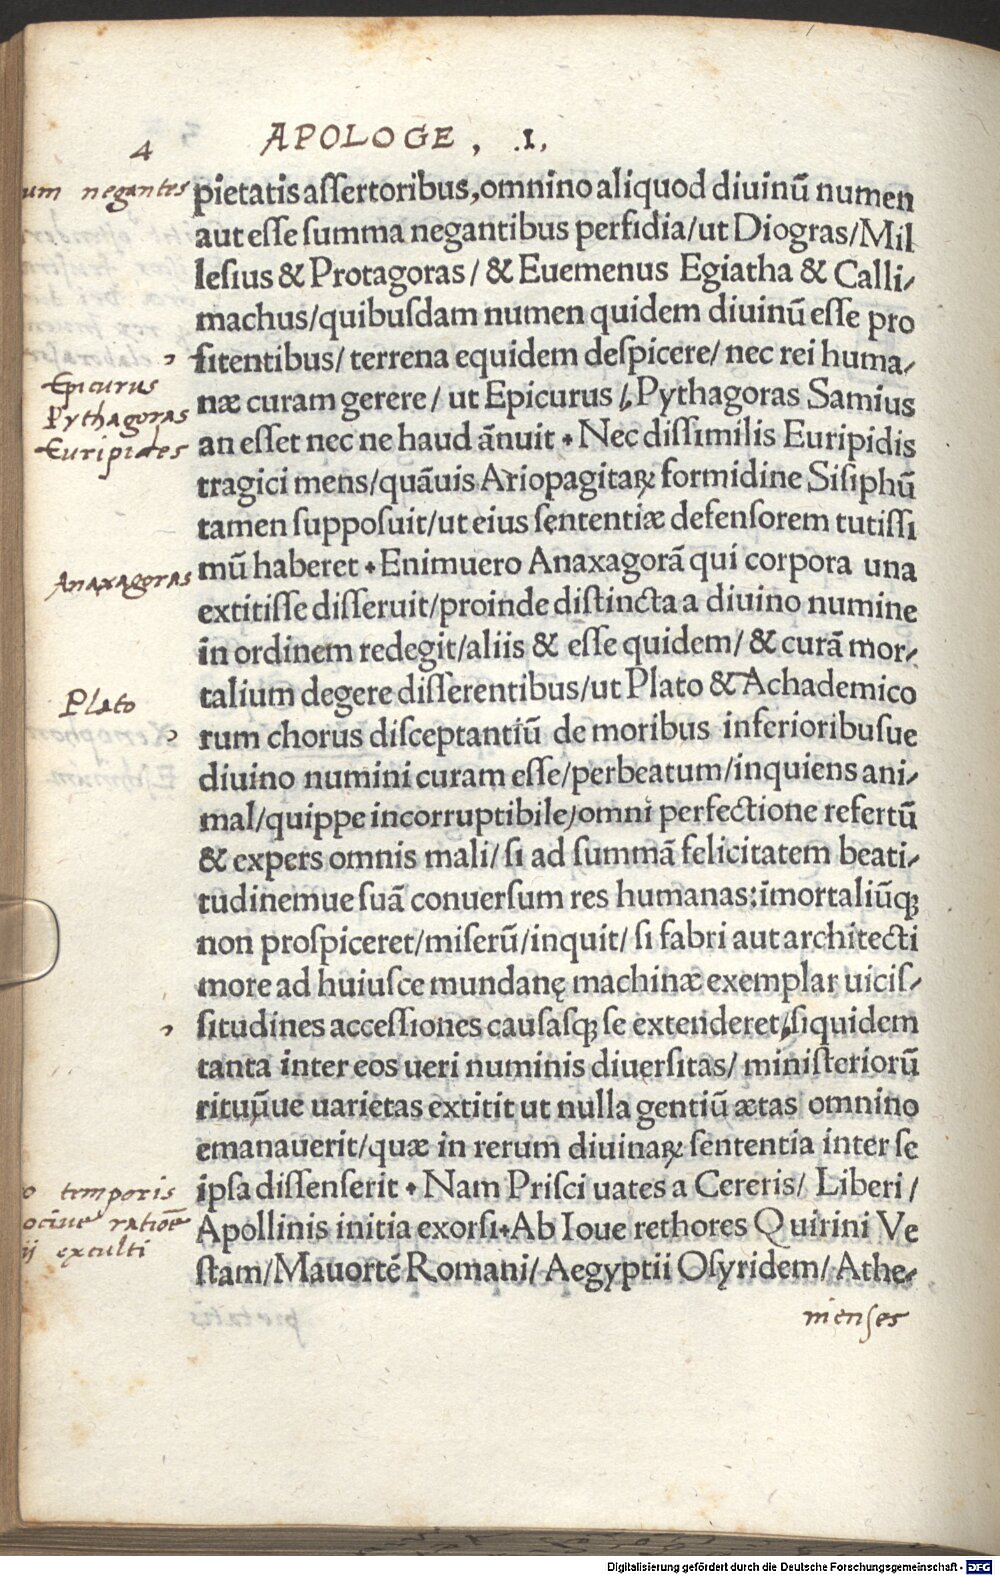 4
APOLOGE, .I,
um negantes
pietatis assertoribus, omnino aliquod diuinū numen
aut esse summa negantibus perfidia/ut Diogras/Mil
lesius & Protagoras/ & Euemenus Egiatha & Calli-
machus/quibusdam numen quidem diuinū esse pro
fitentibus/ terrena equidem despicere/ nec rei huma-
Epicurus
næ curam gerere/ ut Epicurus /, Pythagoras Samius
Pythagoras
an esset nec ne haud ānuit . Nec dissimilis Euripidis
Euripides
tragici mens/quāuis Ariopagitaꝝ formidine Sisiphū
tamen supposuit/ut eius sententiæ defensorem tutissi
mū haberet . Enimuero Anaxagorā qui corpora una
Anaxagoras
extitisse disseruit/proinde distincta a diuino numine
in ordinem redegit/aliis & esse quidem/ & curā mor-
talium degere disserentibus/ut Plato & Achademico
Plato
rum chorus disceptantiū de moribus inferioribusue
diuino numini curam esse/perbeatum/inquiens ani-
mal/quippe incorruptibile/omni perfectione refertū
& expers omnis mali/ si ad summā felicitatem beati-
tudinemue suā conuersum res humanas: īmortaliūqꝫ
non prospiceret/miserū/inquit/ si fabri aut architecti
more ad huiusce mundanę machinæ exemplar uicis-
situdines accessiones causasqꝫ se extenderet, siquidem
tanta inter eos ueri numinis diuersitas/ ministeriorū
rituūue uarietas extitit ut nulla gentiū ætas omnino
emanauerit/quæ in rerum diuinaꝝ sententia inter se
o temporis
ipsa dissenserit . Nam Prisci uates a Cereris/ Liberi/
ociue ratiōe
Apollinis initia exorsi. Ab Ioue rethores Quirini Ve
ij exculti
stam/Mauortē Romani/ Aegyptii Osyridem/ Athe-
nienses
Digitalisierung gefördert durch die Deutsche Forschungsgemeinschaft - DFG